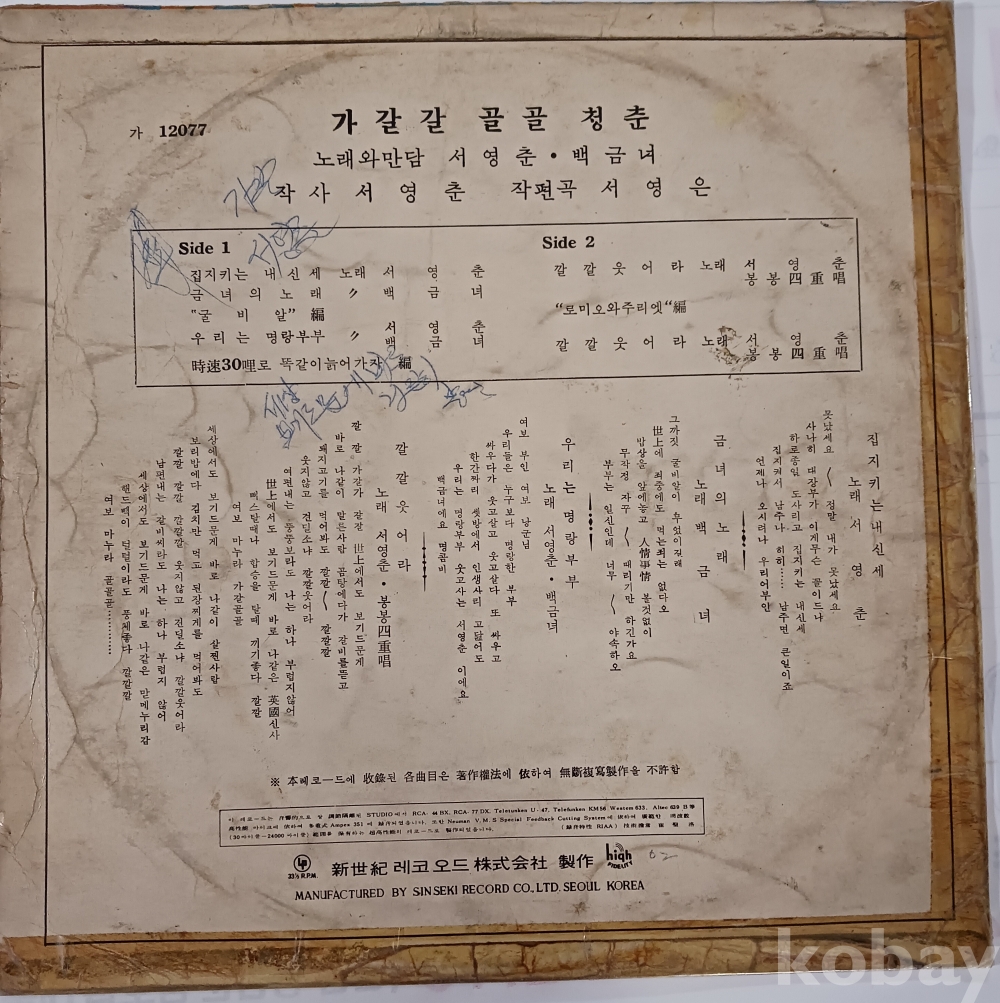 가 12077
가갈갈 골골 청춘
노래와만담 서영춘·백금녀
작사 서영춘 작편곡 서영은
Side 1
집지키는 내신세 노래 서영춘
금녀의노래 〃 백금녀
"굴비알" 編
우리는 명랑부부 〃 서영춘 백금녀
時速30哩로 똑같이늙어가자 編
Side 2
깔깔웃어라 노래 서영춘 봉봉四重唱
"로미오와주리엣" 編
깔깔웃어라 노래 서영춘 봉봉四重唱
집지키는내신세
노래 서영춘
못났세요 〱 정말 내가 못났세요
사나히 대장부가 이게무슨 꼴이드냐
하로종일 도사리고 집지키는 내신세
집지켜서 남주나 히히…… 남주면 큰일이죠
언제나 오시려나 우리어부인
금녀의노래
노래 백금녀
그까짓 굴비알이 무었이길래
世上에 죄중에도 먹는죄는 없다오
밥상을 앞에놓고 人情事情 볼것없이
무작정 자꾸 〱 때리기만 하긴가요
부부는 일신인데 너무 〱 야속하오
우리는명랑부부
노래 서영춘·백금녀
여보 부인 여보 낭군님
우리들은 누구보다 명랑한 부부
싸우다가 웃고살고 웃고살다 또 싸우고
한간짜리 셋방에서 인생사리 고닲어도
우리는 명랑부부 웃고사는 서영춘 이에요
백금녀에요 명콤비
깔깔웃어라
노래 서영춘·봉봉四重唱
깔깔 가갈가 갈갈 世上에서도 보기드문게
바로 나같이 말른사람 곰탕에다가 갈비를뜯고
돼지고기를 먹어봐도 깔깔〱 깔깔깔
웃지않고 견딜소냐 깔깔웃어라
여편내는 뚱뚱보라도 나는 하나 부럽지않어
世上에서도 보기드문게 바로 나같은 英國신사
뻐스탈때나 합승을 탈때 끼기좋다 깔깔
여보 마누라 가갈골골
세상에서도 보기드문게 바로 나같이 살찐사람
보리밥에다 김치만 먹고 된장찌게를 먹어봐도
깔깔 깔깔 깔깔깔 웃지않고 견딜소냐 깔깔웃어라
남편내는 갈비씨라도 나는 하나 부럽지 않어
세상에서도 보기드문게 바로 나같은 맏메누리감
핸드빽이 덜덜이라도 풍체좋다 깔깔깔
여보 마누라 골골골…………
※ 本레코ー드에 收錄된 各曲目은 著作權法에 依하여 無斷複寫製作을 不許함
LP
33⅓ R.P.M.
新世紀 레코오드 株式会社 製作
high FIDELITY
MANUFACTURED BY SINSEKI RECORD CO., LTD. SEOUL KOREA
kobay